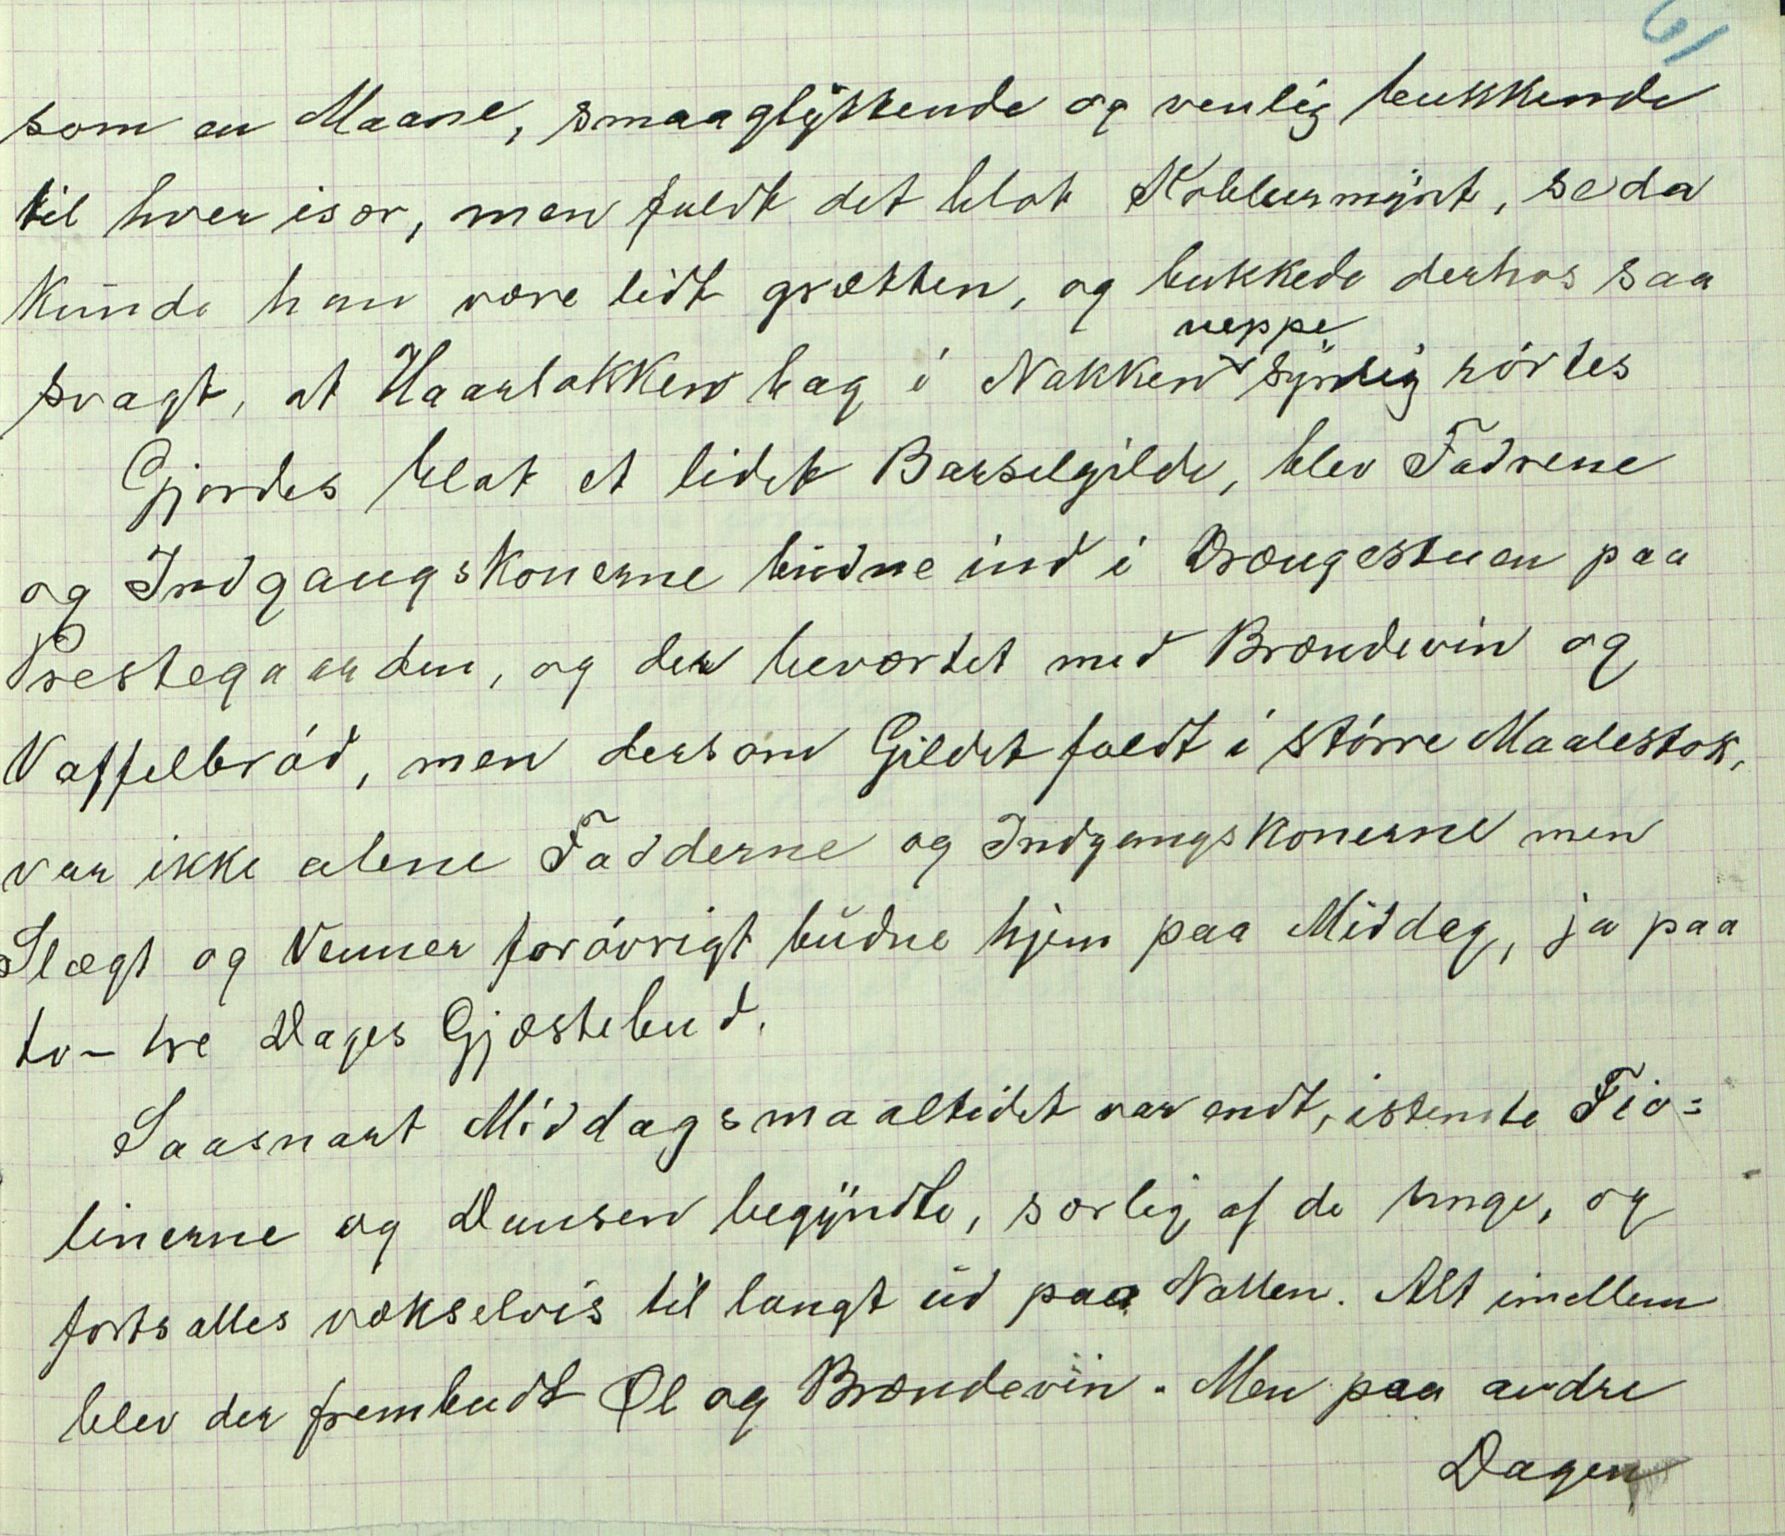 61
som en Maane, smaaglyttende og venlig bukkende
til hver især, men faldt det blot Kobbermynt, se da
kunde han være lidt grætten, og bukkede derhos saa
svagt, at Haarlokken bag i Nakken neppe synlig rórtes
Gjordes blot et lidet Barselgilde, blev Fadrene
og Indgangskonerne budne ind i Drængestuen paa
Prestegaarden, og der beværtet med Brændevin og
Vaffelbród, men dersom Gildet faldt i stórre Maalestok,
var ikke alene Fadderne og Indgangskonerne men
Slægt og Venner foróvrigt budne hjem paa Middag, ja paa
to- tre Dages Gjæstebud.
Saasnart Middagsmaaltidet var endt, istemte Fio=
linerne og Dansen begyndte, særlig af de unge, og
fortsattes vækselvis til langt ud paa Natten. Alt imellem
blev der frembudt Øl og Brændevin. Men paa andre
Dagen